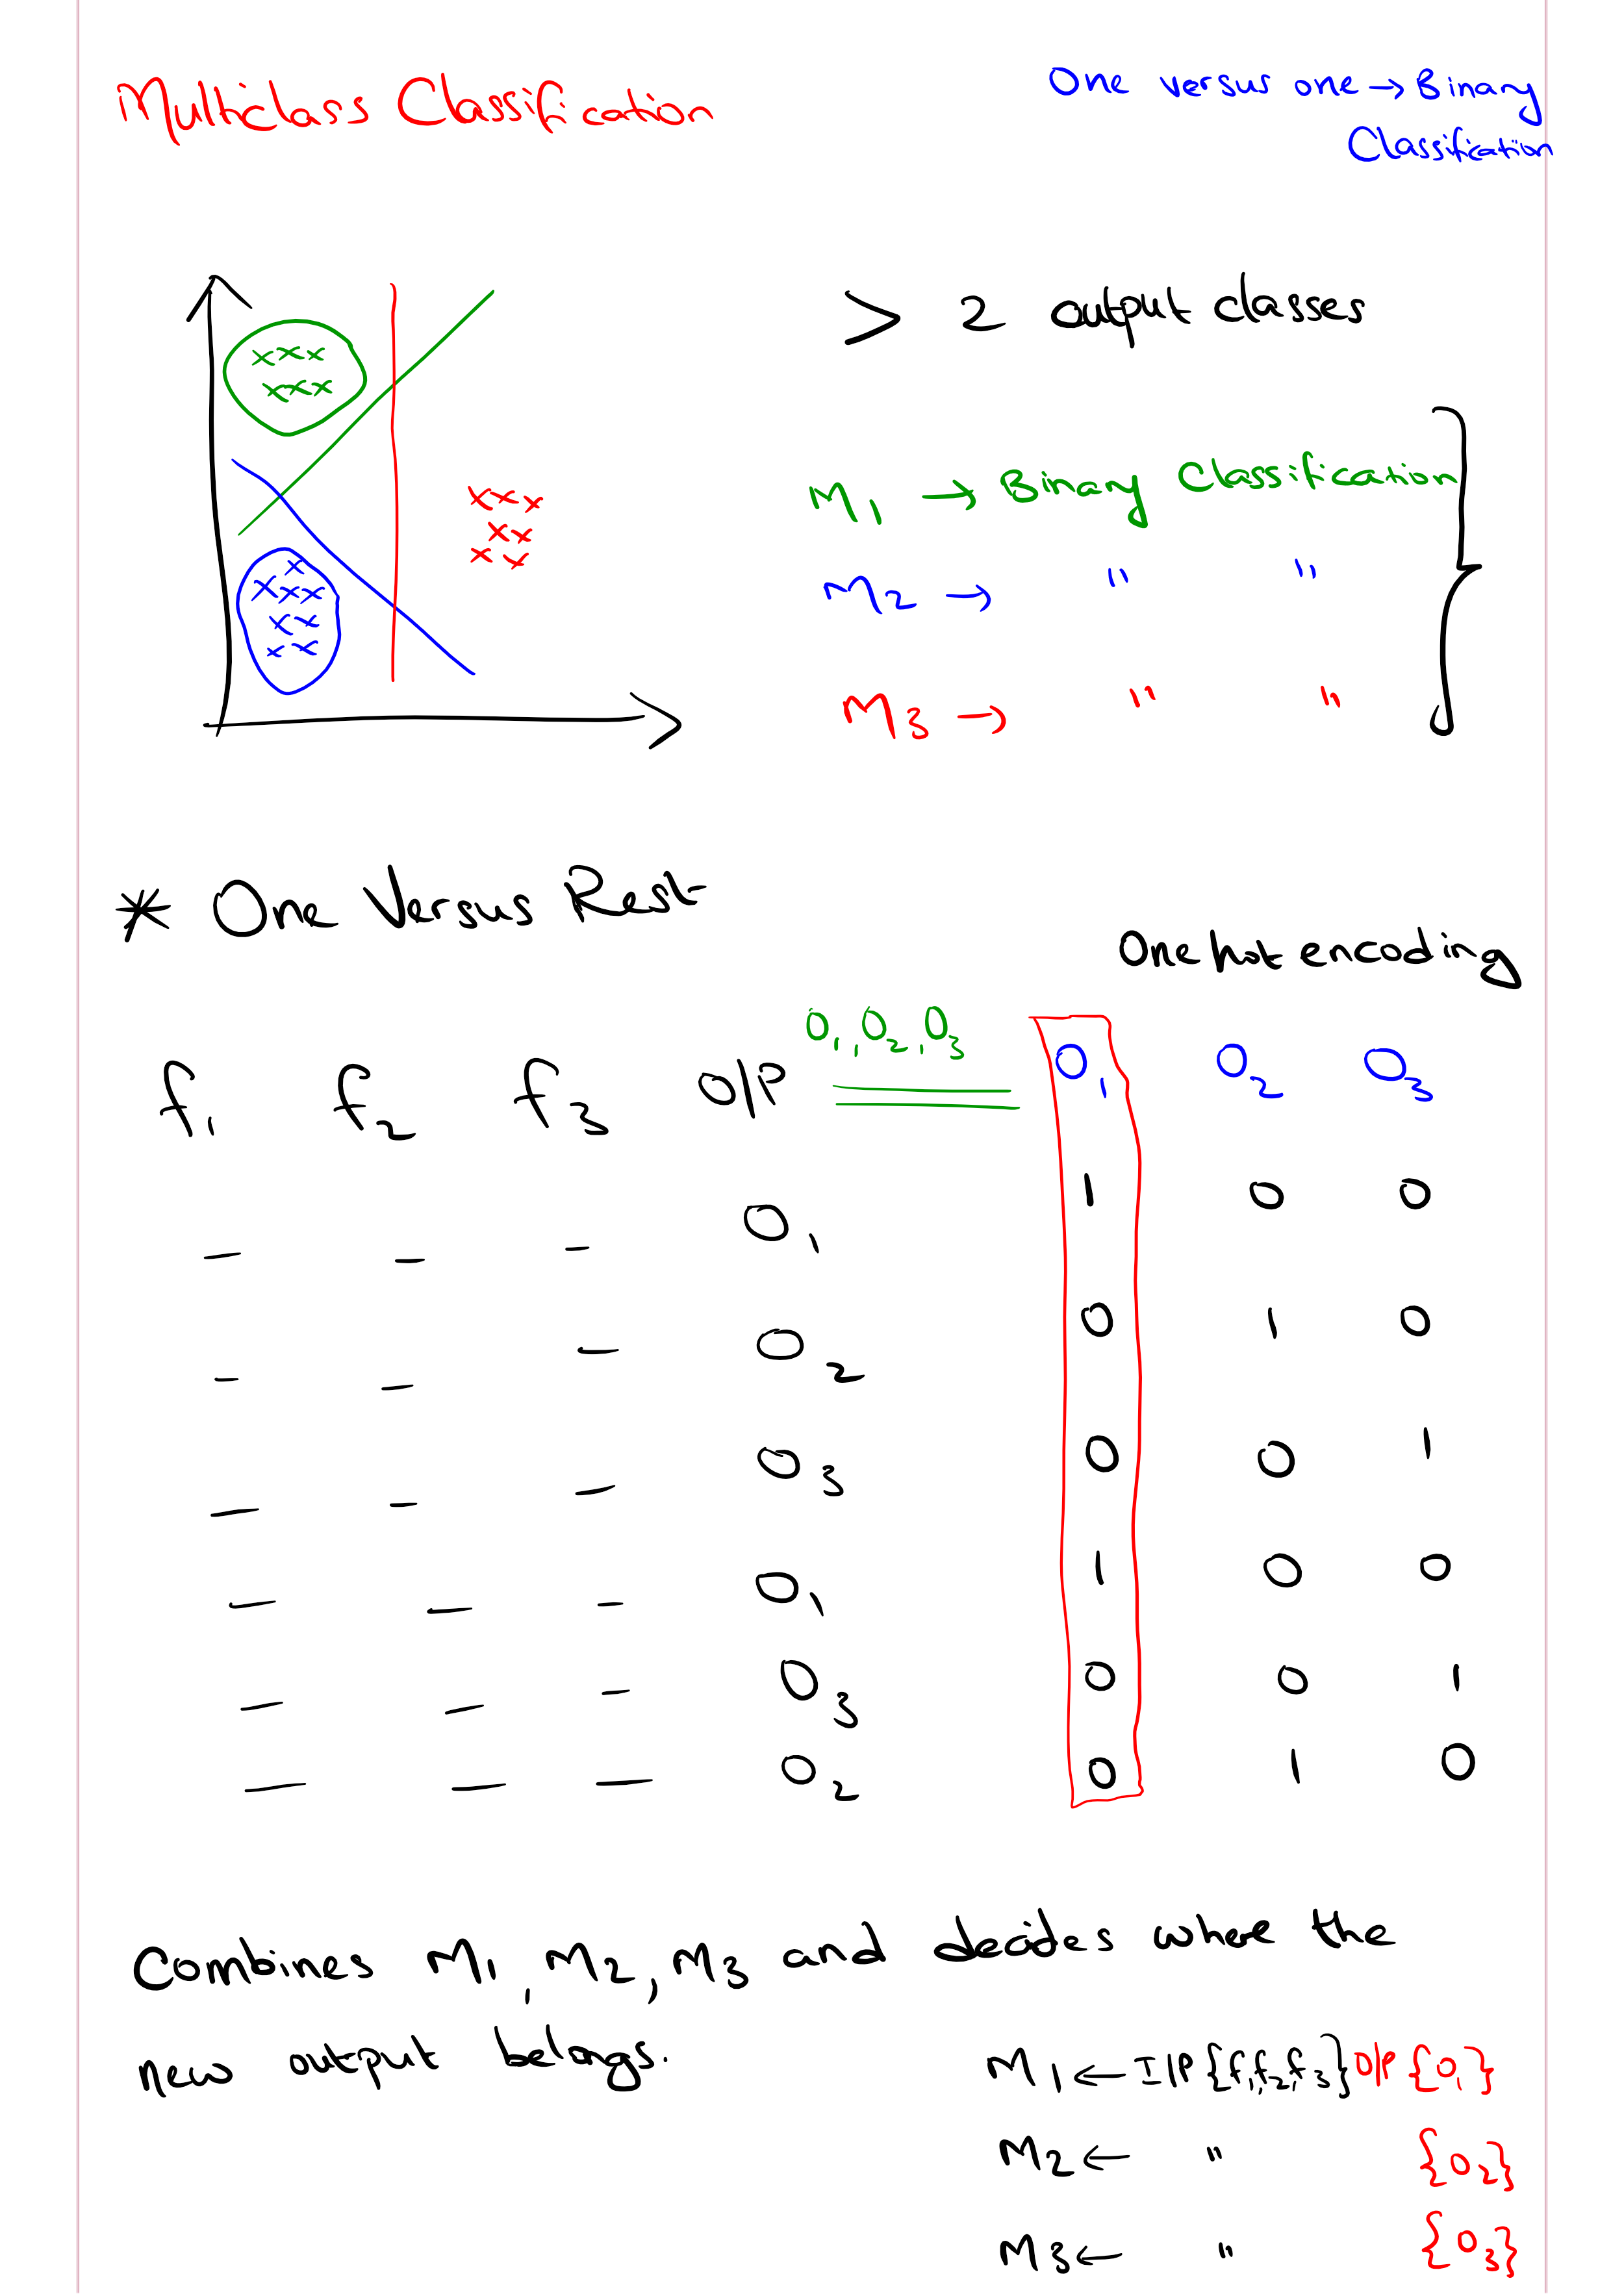 Multiclass Classification
One versus one → Binary
Classification
> 2 output classes
M1 → Binary Classification
M2 → " "
M3 → " "
* One Versus Rest
One hot encoding
O1, O2, O3
f1 f2 f3 O/P O1 O2 O3
– – – O1 1 0 0
– – – O2 0 1 0
– – – O3 0 0 1
– – – O1 1 0 0
– – – O3 0 0 1
– – – O2 0 1 0
Combines M1, M2, M3 and decides where the
new output belongs.
M1 ← I/P {f1, f2, f3} O/P {O1}
M2 ← " {O2}
M3 ← " {O3}